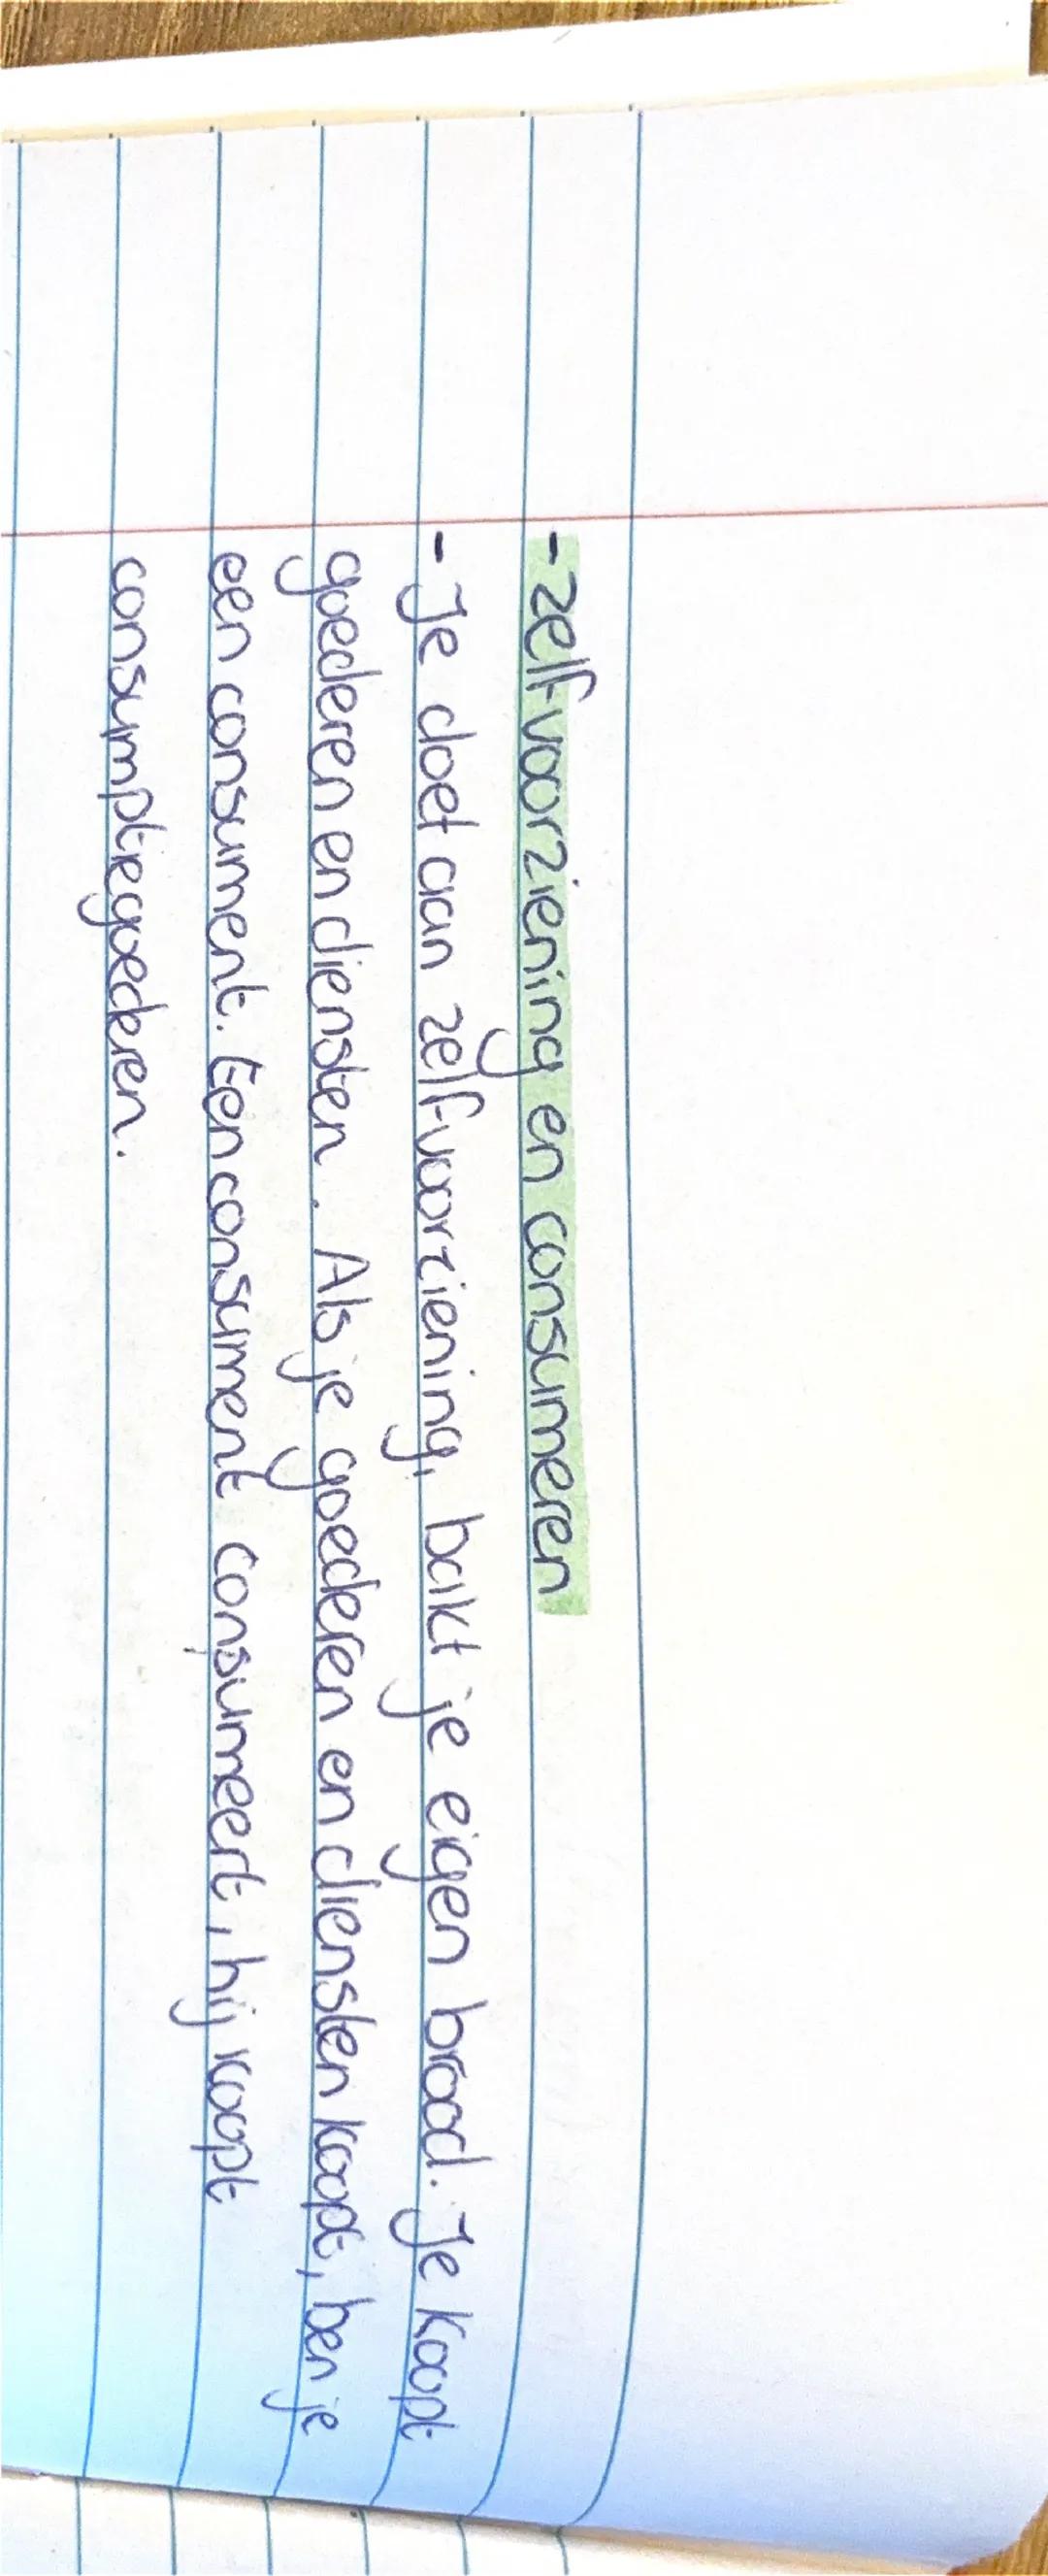 - zelfvoorziening en consumeren
- Je doet aan zelfvoorziening, bakt je eigen brood. Je koopt
goederen en diensten. Als je goederen en diensten koopt, ben je
een consument. Een consument consumeert, hij koopt
consumptiegoederen.